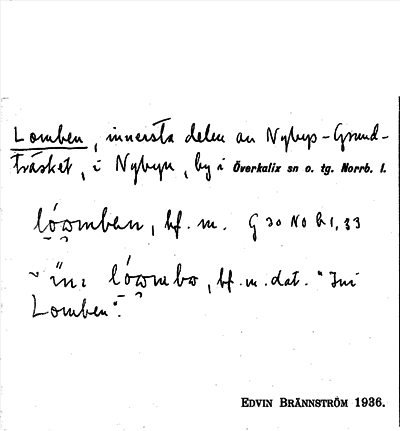 Lomben, innersta delen av Nybyn-Grund-
träsket, i Nybyn, by i Överkalix sn o. tg. Norrb. l.
lówmben, bf. m. G 30 NO b 1, 33
ĭn: lówmbɷ, bf. m. dat. "Ini
Lomben".
EDVIN BRÄNNSTRÖM 1936.